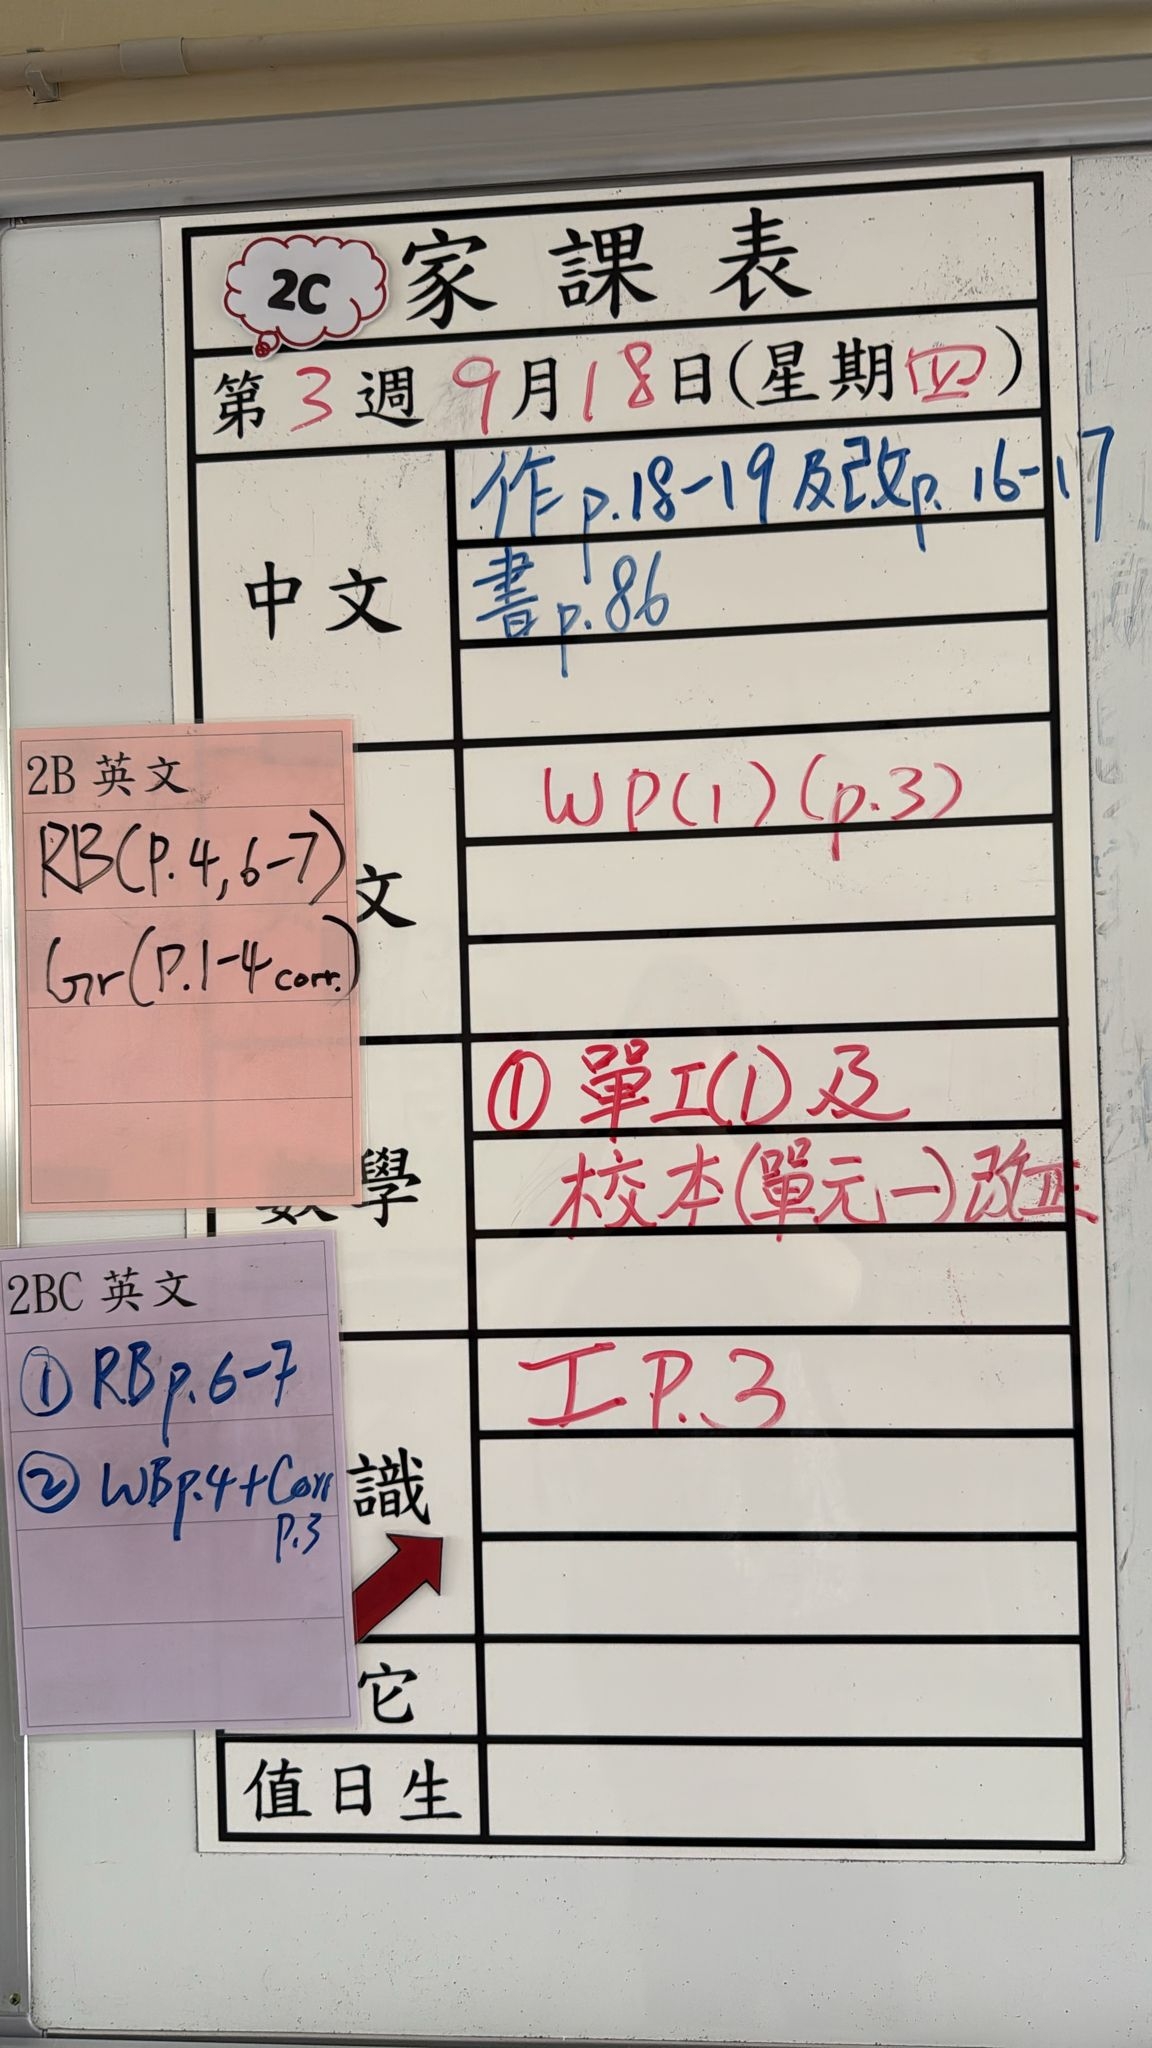 2C 家課表
第3週 9月18日(星期四)
中文
作p.18-19及改p.16-17
書p.86
文
WP(1)(p.3)
2B 英文
RB(P.4,6-7)
Gr(P.1-4 corr.)
數學
① 單工(1)及
校本(單元一)改正
2BC 英文
① RB p.6-7
② WB p.4+Corr
P.3
識
工P.3
它
值日生